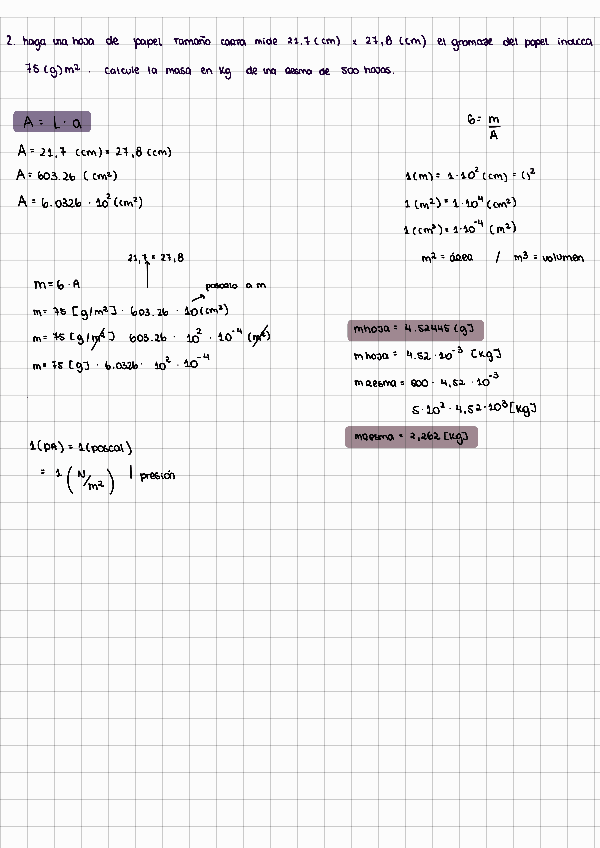 2. haga una hoja de papel tamaño carta mide 21,7 (cm) x 27,8 (cm) el gramaje del papel indica
75 (g) m². calcule la masa en kg de una resma de 500 hojas.
A = L · a
A = 21,7 (cm) x 27,8 (cm)
A = 603.26 (cm²)
A = 6.0326 · 10² (cm²)
G = m/A
1(m) = 1·10² (cm) = ()²
1(m²) = 1·10⁴ (cm²)
1(cm²) = 1·10⁻⁴ (m²)
m² = área / m³ = volumen
21,7 x 27,8
m = G · A
pasarlo a m
m = 75 [g/m²] · 603.26 · 10 (cm²)
m = 75 [g/m²] 603.26 · 10² · 10⁻⁴ (m²)
m = 75 [g] · 6.0326 · 10² · 10⁻⁴
mhoja = 4.52445 (g)
mhoja = 4.52 · 10⁻³ [kg]
mresma = 500 · 4,52 · 10⁻³
5·10² · 4,52·10³ [kg]
mresma = 2,262 [kg]
1(pA) = 1(pascal)
= 1 (N/m²) | presión